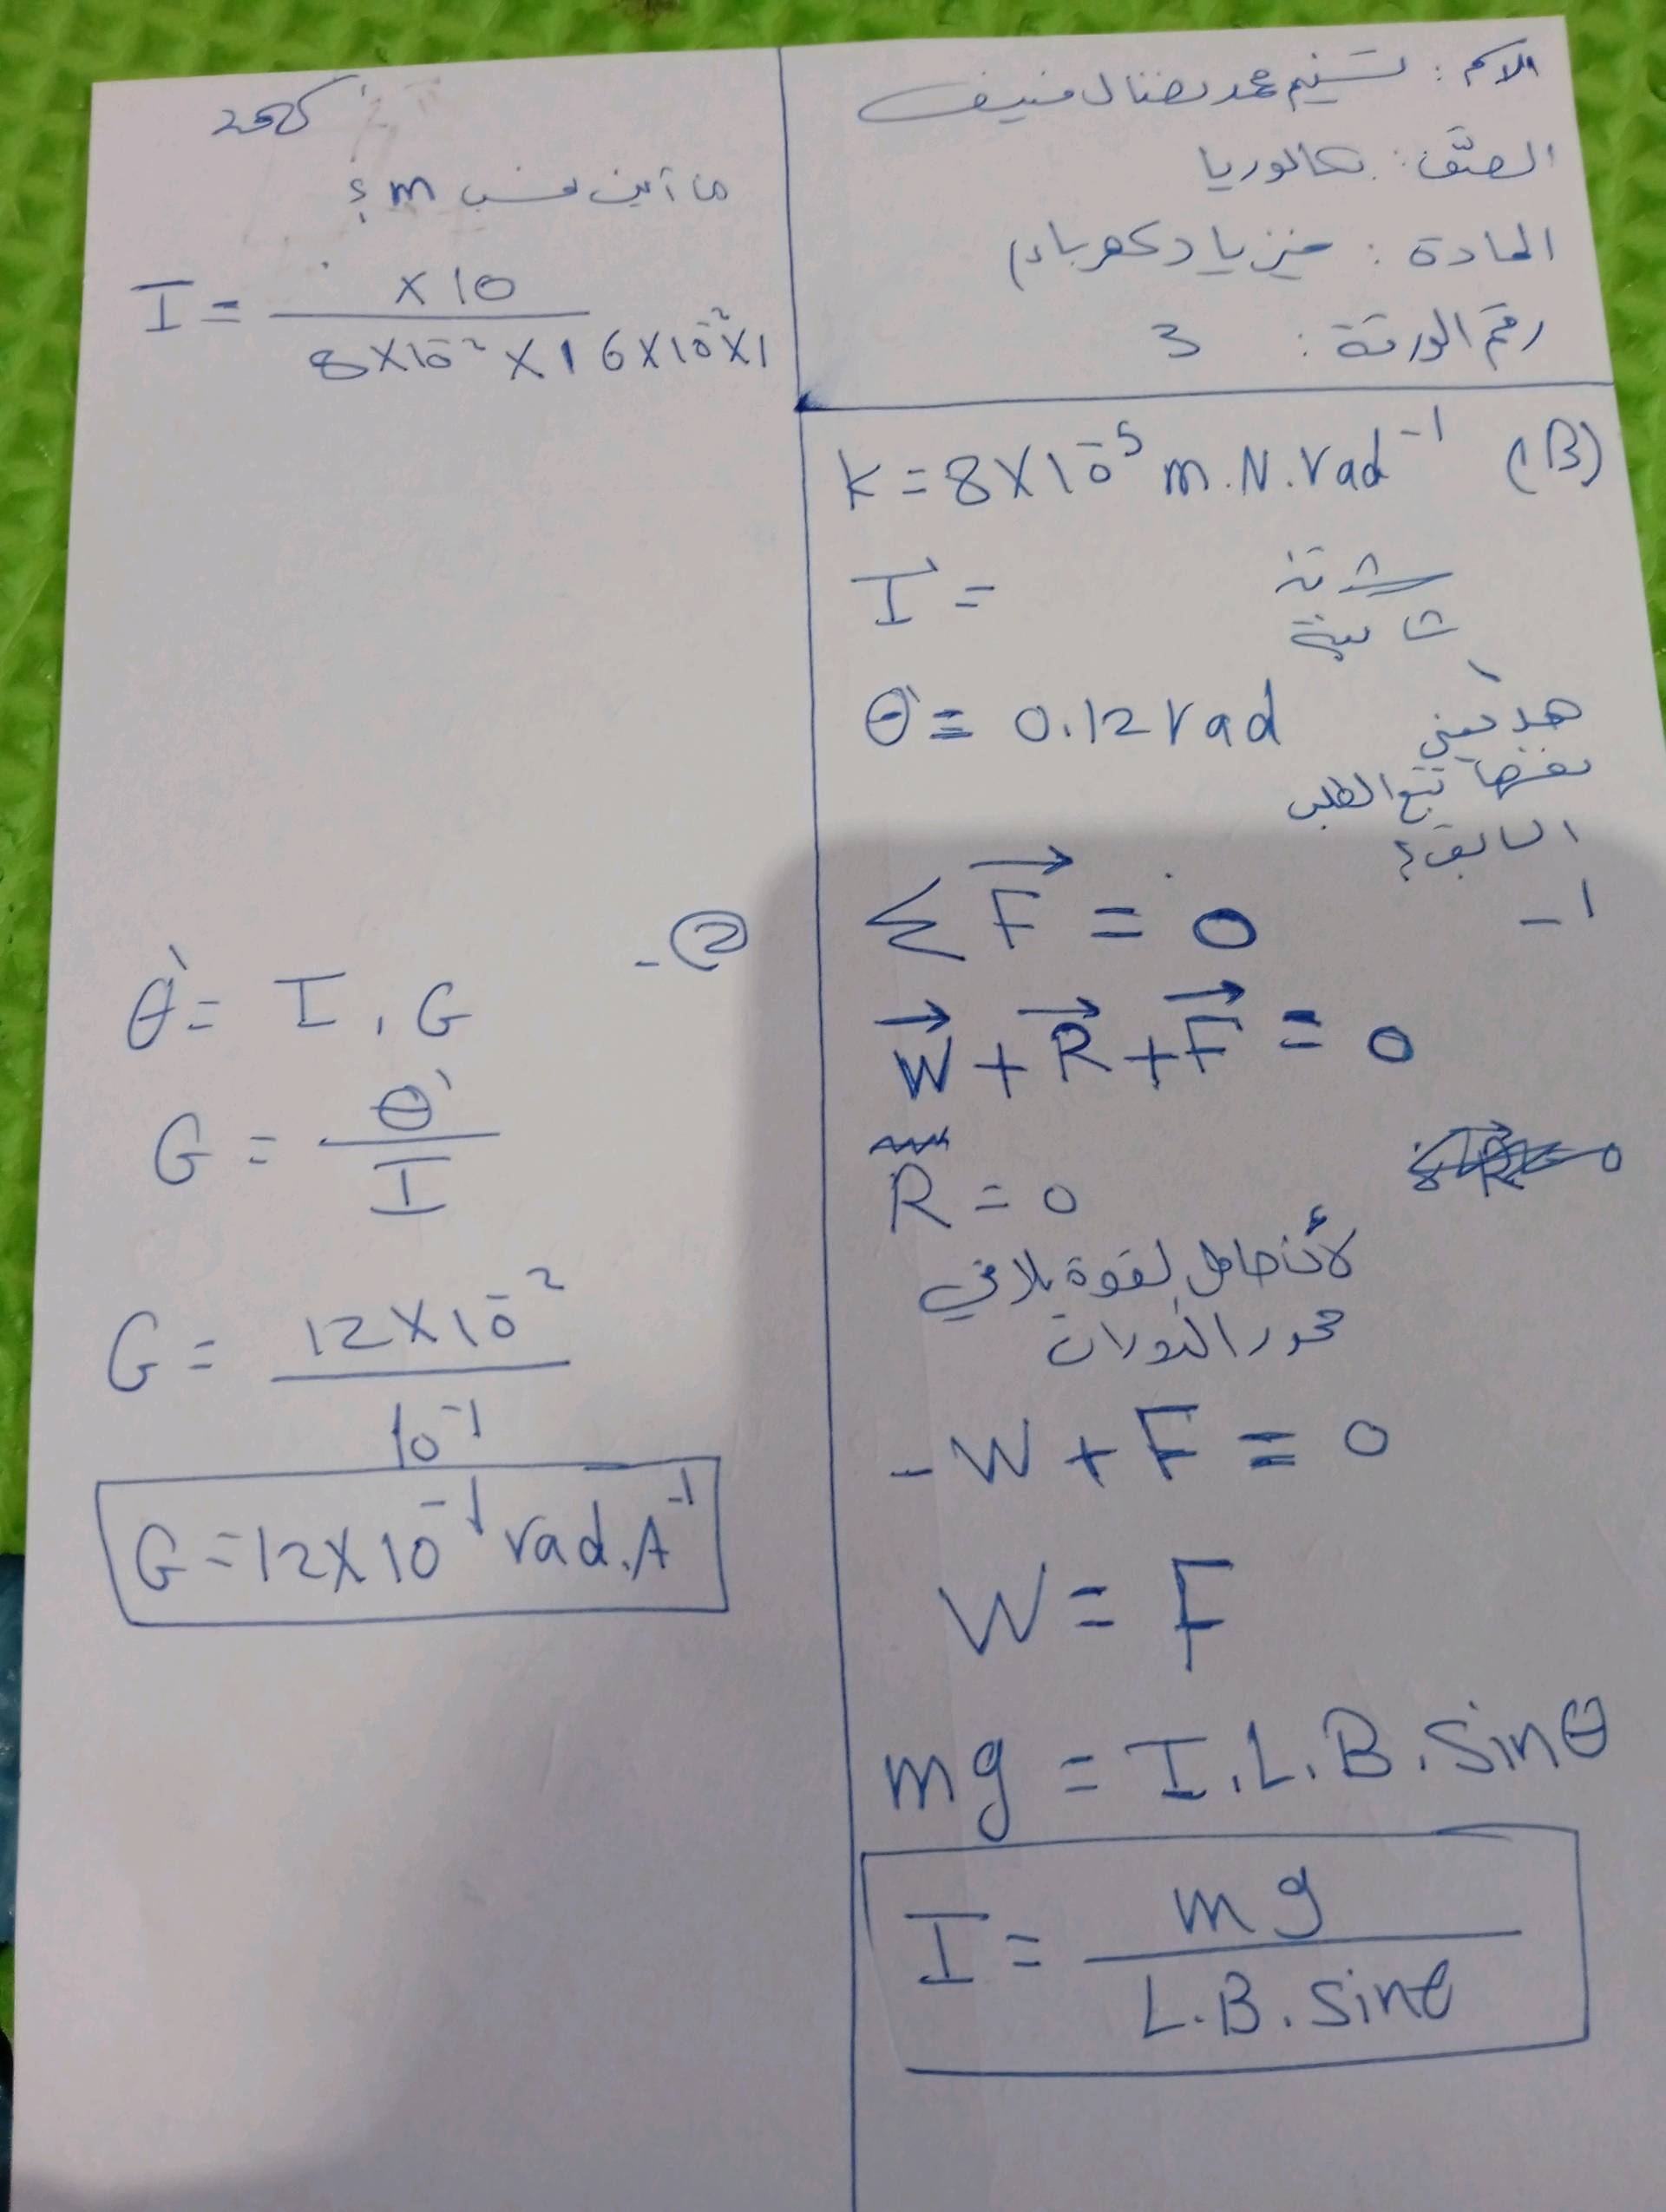 الاسم : تسنيم محمد نضال منيف
الصف : بكالوريا
المادة : فيزياء (كهرباء)
رقم الورقة : 3
(B) k = 8×10⁻⁵ m.N.rad⁻¹
I = شدة
ثانية
θ' = 0.12 rad
هل يعني
نفسها تبع الطلب
السابق؟
1 -
Σ F = 0
W + R + F = 0
R = 0
لأن حامل القوة يلاقي
محور الدوران
- W + F = 0
W = F
mg = I.L.B.sinθ
I = mg / L.B.sinθ
من أين نحسب m ؟
I = ×10 / 8×10⁻² × 16×10⁻² ×1
2 -
θ' = I . G
G = θ' / I
G = 12×10⁻² / 10⁻¹
G = 12×10⁻¹ rad.A⁻¹